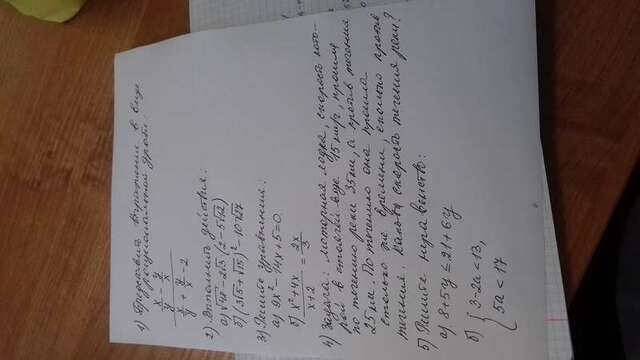 1) Представить выражение в виде
рациональной дроби:
x/y - y/x
x/y + y/x - 2
2) Выполнить действия:
а) √48 - 2√3 (2 - 5√12)
б) (3√5 + √15)² - 10√27
3) Решите уравнения:
а) 9x² - 14x + 5 = 0
б) x² + 4x / x + 2 = 2x / 3
4) Задача: моторная лодка, скорость кото-
рой в стоячей воде 15 км/ч, прошла
по течению реки 35 км, а против течения
25 км. По течению она прошла
столько же времени, сколько против
течения. Какова скорость течения реки?
5) Решите неравенство:
а) 8 + 5y ≤ 21 + 6y
б) { 3 - 2a < 13,
5a < 17